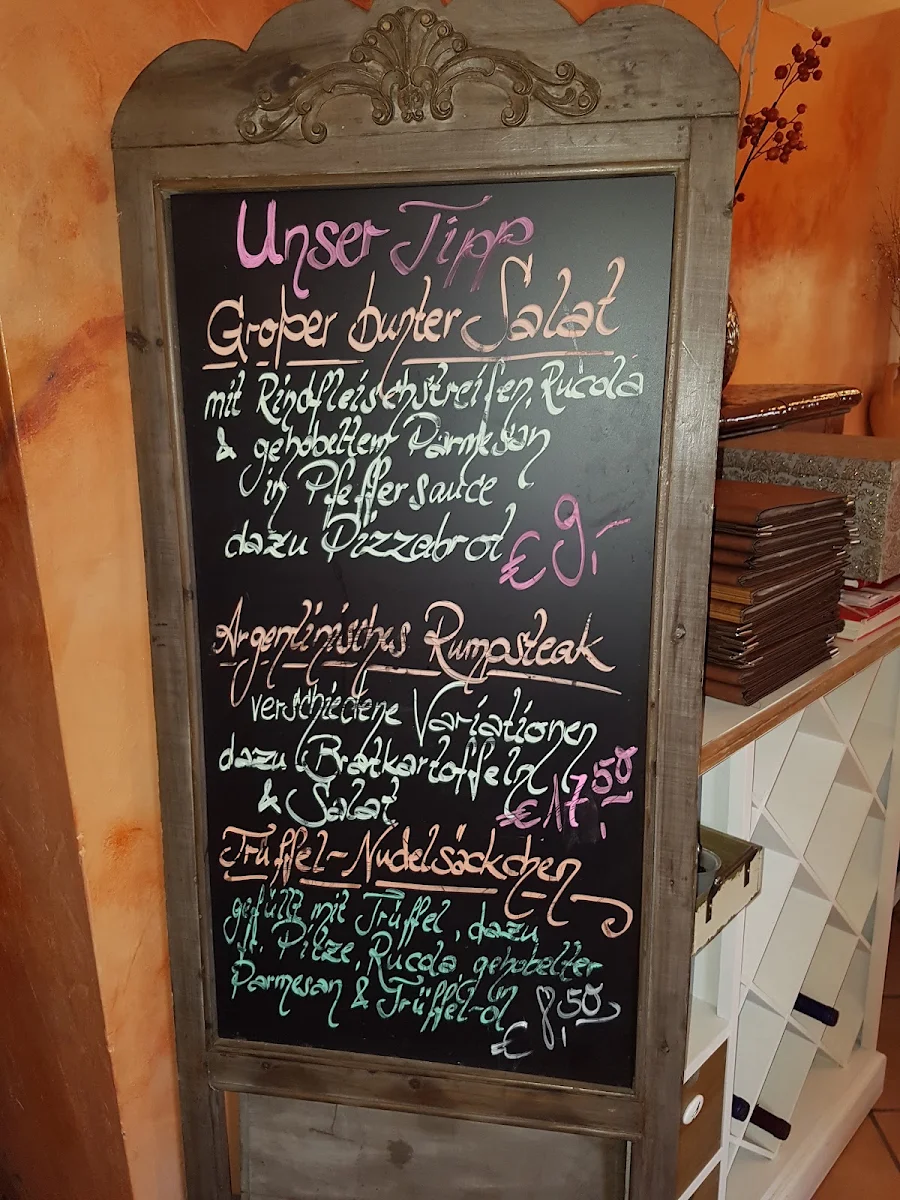 Unser Tipp
Großer bunter Salat
mit Rindfleischstreifen, Rucola
& gehobeltem Parmesan
in Pfeffersauce
dazu Pizzabrot € 9,-
Argentinisches Rumpsteak
verschiedene Variationen
dazu Bratkartoffeln
& Salat € 17,50
Trüffel-Nudelsäckchen
gefüllt mit Trüffel, dazu
fr. Pilze, Rucola, gehobelter
Parmesan & Trüffel-öl
€ 8,50